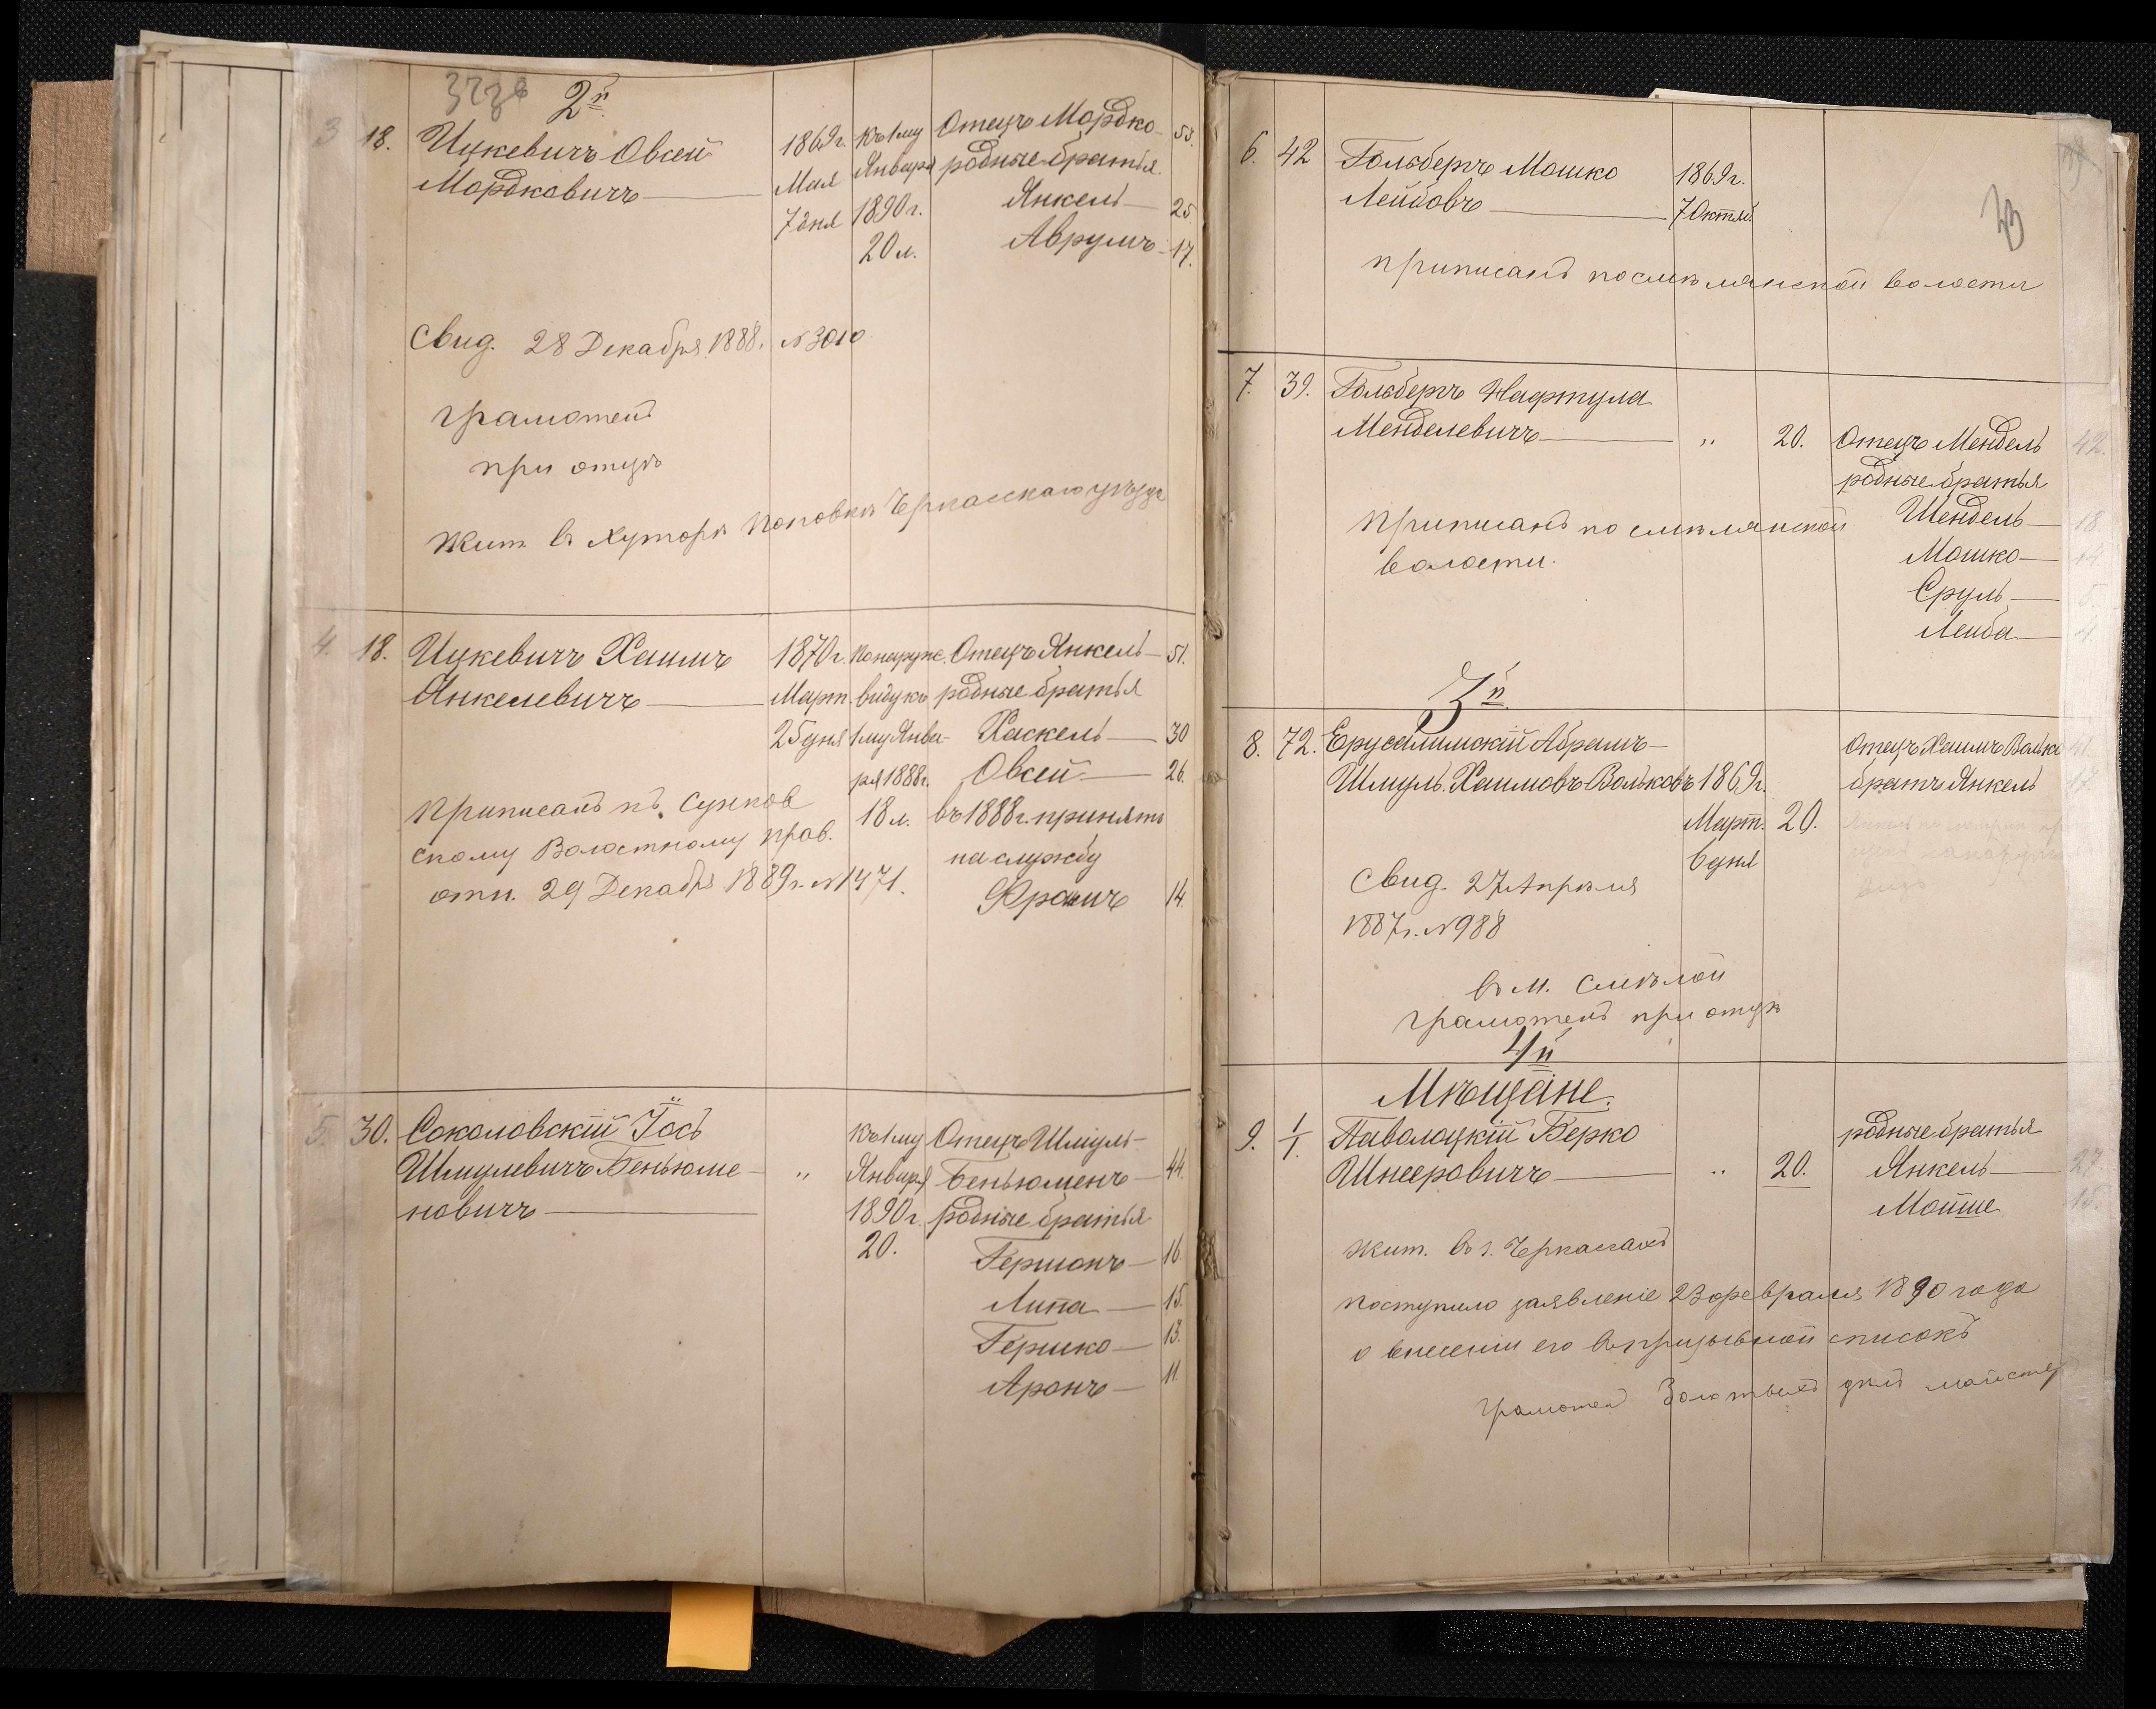 2й
3 18. Ицкевичъ Овсей 1869г. Къ 1му Отецъ Мордко 53.
Мордковичъ Мая Января родные братья
7 дня 1890г. Янкель 25
20 л. Аврумъ 17.
Свид. 28 Декабря 1888. №3010
грамотенъ
при отцѣ
жит. въ Хуторѣ Поповкѣ Черкасскаго уѣзда
4. 18. Ицкевичъ Хаимъ 1870г. По наруж. Отецъ Янкель 51.
Янкелевичъ Март. виду къ родные братья
25 дня 1му Янва- Хаскель 30
ря 1888г. Овсей 26.
18 л. въ 1888г. принятъ
на службу
Фроимъ 14.
приписанъ къ Сунков
скому Волостному прав.
отн. 29 Декабря 1889г. №1471.
5. 30. Соколовскій Іось Къ 1му Отецъ Шмуль-
Шмулевичъ Беньюме- " Января Беньюменъ 44.
новичъ 1890г. родные братья
20. Гершонъ 16
Липа 15.
Гершко 13.
Аронъ 11.
6. 42 Гольберъ Мошко 1869г.
Лейбовъ 7 Октяб
приписанъ по смѣлянской волости
7. 39. Гольберъ Нафтула
Менделевичъ " 20. Отецъ Мендель 42.
родные братья
Шендель 18
Мошко 14
Сруль
Лейба 4
приписанъ по смѣлянской
волости.
3й
8. 72. Ерусалимскій Абрамъ- Отецъ Хаимъ Волько 41.
Шмуль Хаимовъ-Вольковъ 1869г. братъ Янкель 17
Март. 20.
6 дня
Свид. 27 Апрѣля
1887г. №988
въ м. Смѣлой
грамотенъ при отцѣ
4й
Мѣщане.
9. 1/1. Паволоцкій Берко родные братья
Шнееровичъ " 20. Янкель 27.
Мойше 15.
жит. въ г. Черкассахъ
поступило заявленіе 23 февраля 1890 года
о внесеніи его въ призывной списокъ
грамотенъ Золотыхъ дѣлъ майстеръ